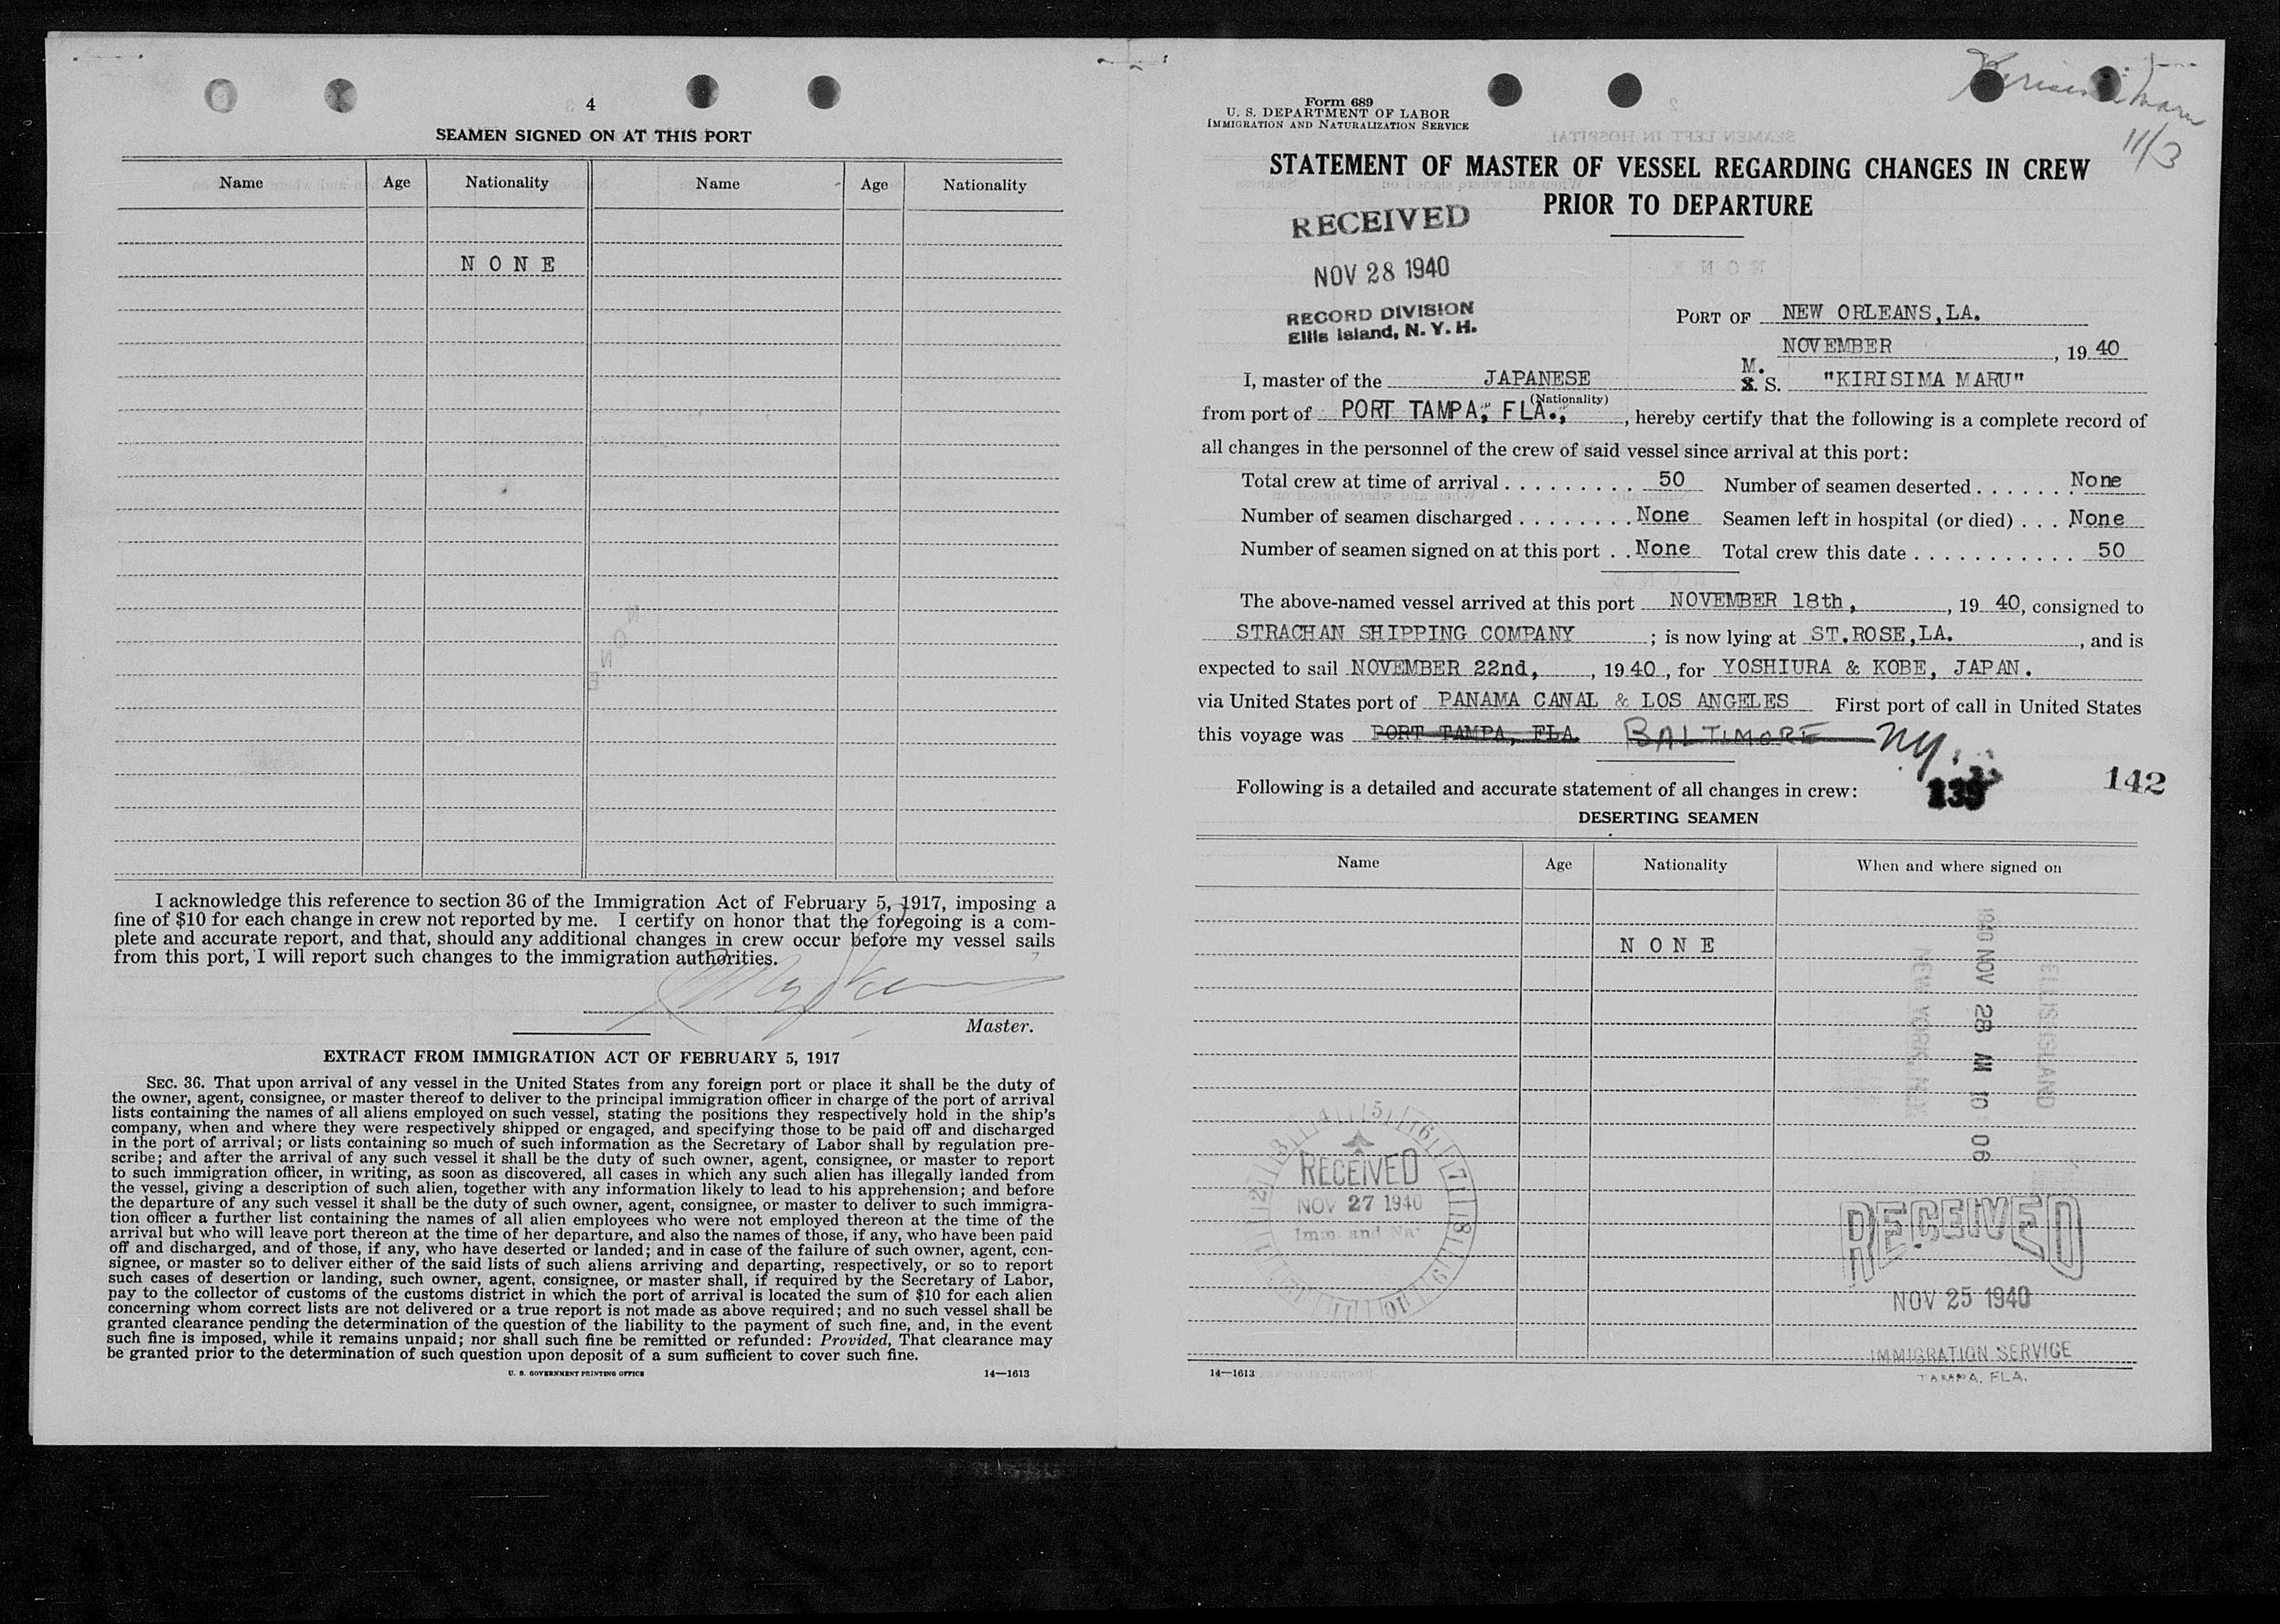 4
SEAMEN SIGNED ON AT THIS PORT
Name Age Nationality Name Age Nationality
NONE
I acknowledge this reference to section 36 of the Immigration Act of February 5, 1917, imposing a
fine of $10 for each change in crew not reported by me. I certify on honor that the foregoing is a com-
plete and accurate report, and that, should any additional changes in crew occur before my vessel sails
from this port, I will report such changes to the immigration authorities.
Master.
EXTRACT FROM IMMIGRATION ACT OF FEBRUARY 5, 1917
SEC. 36. That upon arrival of any vessel in the United States from any foreign port or place it shall be the duty of
the owner, agent, consignee, or master thereof to deliver to the principal immigration officer in charge of the port of arrival
lists containing the names of all aliens employed on such vessel, stating the positions they respectively hold in the ship's
company, when and where they were respectively shipped or engaged, and specifying those to be paid off and discharged
in the port of arrival; or lists containing so much of such information as the Secretary of Labor shall by regulation pre-
scribe; and after the arrival of any such vessel it shall be the duty of such owner, agent, consignee, or master to report
to such immigration officer, in writing, as soon as discovered, all cases in which any such alien has illegally landed from
the vessel, giving a description of such alien, together with any information likely to lead to his apprehension; and before
the departure of any such vessel it shall be the duty of such owner, agent, consignee, or master to deliver to such immigra-
tion officer a further list containing the names of all alien employees who were not employed thereon at the time of the
arrival but who will leave port thereon at the time of her departure, and also the names of those, if any, who have been paid
off and discharged, and of those, if any, who have deserted or landed; and in case of the failure of such owner, agent, con-
signee, or master so to deliver either of the said lists of such aliens arriving and departing, respectively, or so to report
such cases of desertion or landing, such owner, agent, consignee, or master shall, if required by the Secretary of Labor,
pay to the collector of customs of the customs district in which the port of arrival is located the sum of $10 for each alien
concerning whom correct lists are not delivered or a true report is not made as above required; and no such vessel shall be
granted clearance pending the determination of the question of the liability to the payment of such fine, and, in the event
such fine is imposed, while it remains unpaid; nor shall such fine be remitted or refunded: Provided, That clearance may
be granted prior to the determination of such question upon deposit of a sum sufficient to cover such fine.
U. S. GOVERNMENT PRINTING OFFICE 14—1613
Kirisima Maru
11/3
Form 689
U. S. DEPARTMENT OF LABOR
IMMIGRATION AND NATURALIZATION SERVICE
STATEMENT OF MASTER OF VESSEL REGARDING CHANGES IN CREW
PRIOR TO DEPARTURE
RECEIVED
NOV 28 1940
RECORD DIVISION
Ellis Island, N. Y. H.
PORT OF NEW ORLEANS, LA.
NOVEMBER, 19 40
I, master of the JAPANESE M. S. "KIRISIMA MARU"
(Nationality)
from port of PORT TAMPA, FLA., hereby certify that the following is a complete record of
all changes in the personnel of the crew of said vessel since arrival at this port:
Total crew at time of arrival . . . . . . . . . 50 Number of seamen deserted . . . . . . . None
Number of seamen discharged . . . . . . . . None Seamen left in hospital (or died) . . . . None
Number of seamen signed on at this port . . None Total crew this date . . . . . . . . . . . . 50
The above-named vessel arrived at this port NOVEMBER 18th, , 19 40, consigned to
STRACHAN SHIPPING COMPANY ; is now lying at ST.ROSE,LA. , and is
expected to sail NOVEMBER 22nd, , 19 40 , for YOSHIURA & KOBE, JAPAN.
via United States port of PANAMA CANAL & LOS ANGELES First port of call in United States
this voyage was PORT TAMPA, FLA. BALTIMORE N.Y.
Following is a detailed and accurate statement of all changes in crew: 142
DESERTING SEAMEN
Name Age Nationality When and where signed on
NONE
1940 NOV 28 AM 10 06
ELLIS ISLAND
RECEIVED
NOV 27 1940
Imm. and Nat
RECEIVED
NOV 25 1940
IMMIGRATION SERVICE
TAMPA, FLA.
14—1613